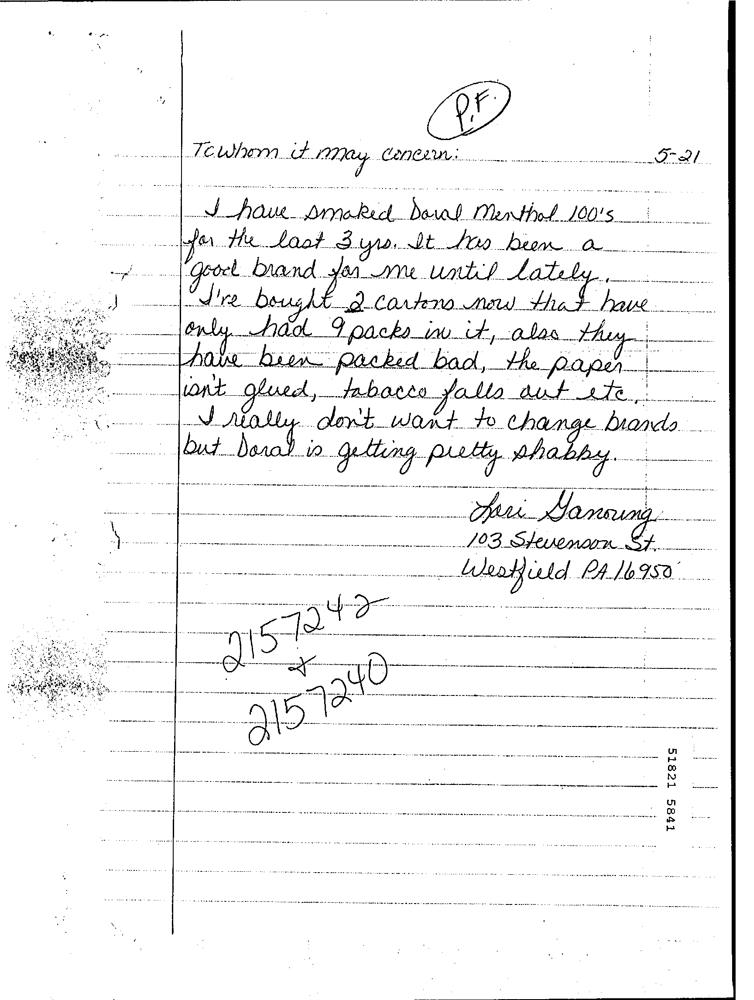 P.F.
To Whom it may concern: 5-21
I have smoked Doral Menthol 100's
for the last 3 yrs. It has been a
good brand for me until lately.
I've bought 2 cartons now that have
only had 9 packs in it, also they
have been packed bad, the paper
isn't glued, tobacco falls out etc.
I really don't want to change brands
but Doral is getting pretty shabby.
Lori Ganoung
103 Stevenson St.
Westfield PA 16950
2157242
+
2157240
51821 5841